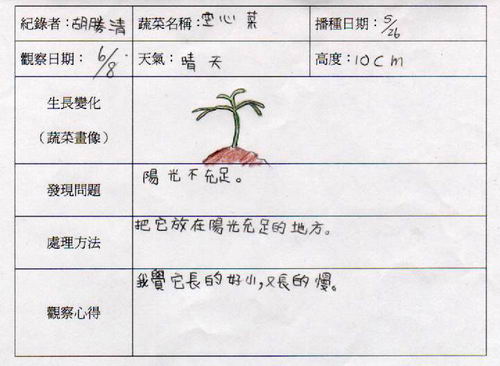 紀錄者：胡勝清 蔬菜名稱：空心菜 播種日期：5/26
觀察日期：6/8 天氣：晴天 高度：10Cm
生長變化
（蔬菜畫像）
發現問題 陽光不充足。
處理方法 把它放在陽光充足的地方。
觀察心得 我覺它長的好小,又長的慢。